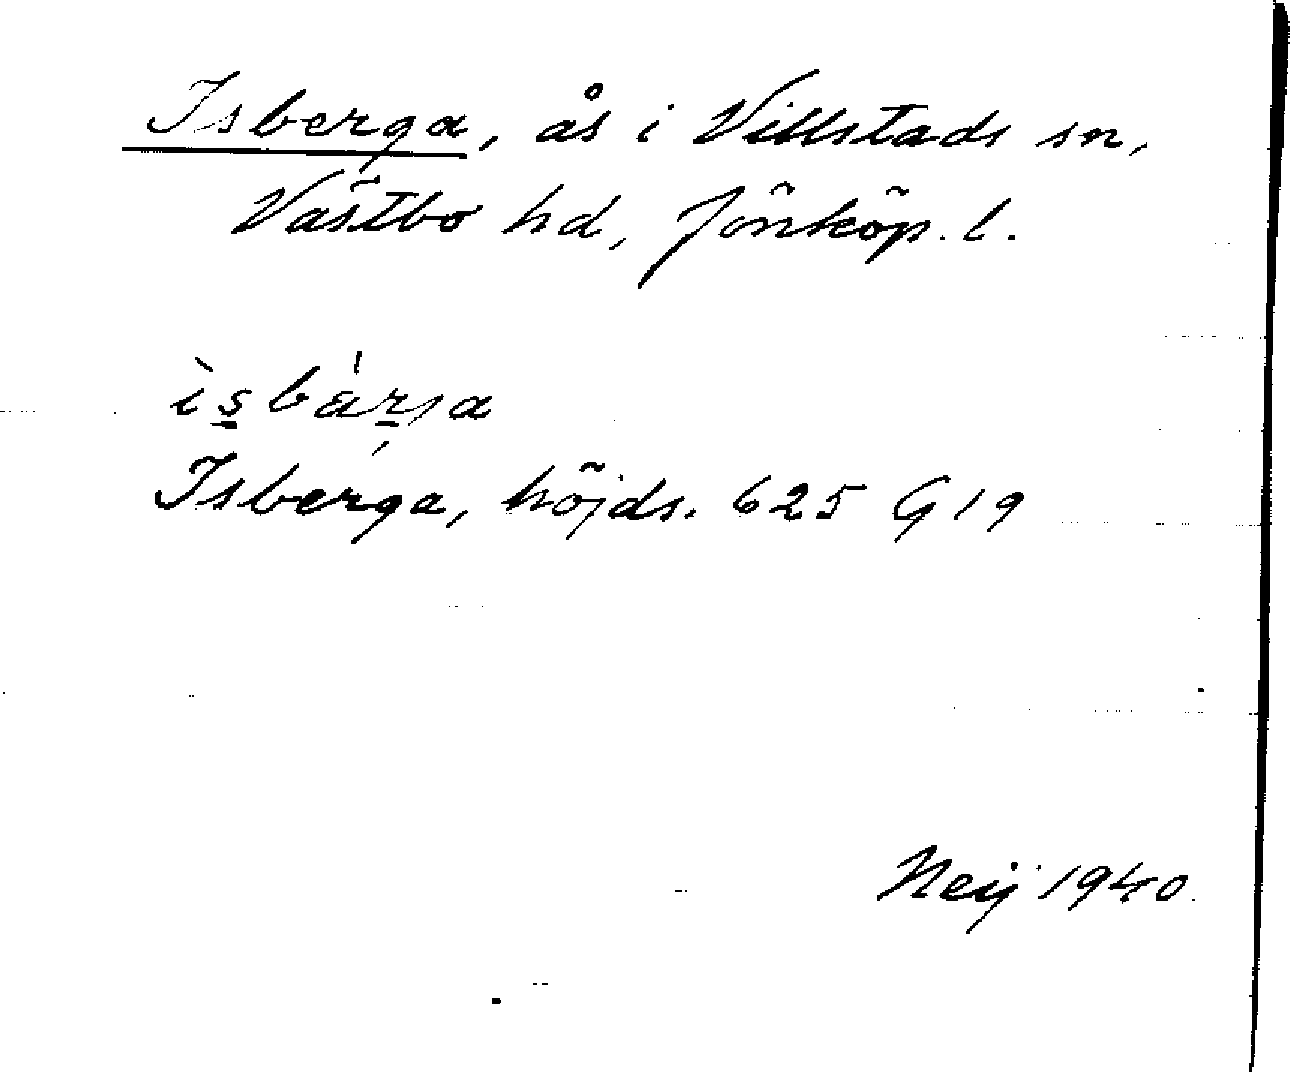 Isberga, ås i Villstads sn,
Västbo hd, Jönköp. l.
ìs̲bár̲ȷa
Isberga, höjds. 625 G 19
Neij 1940.